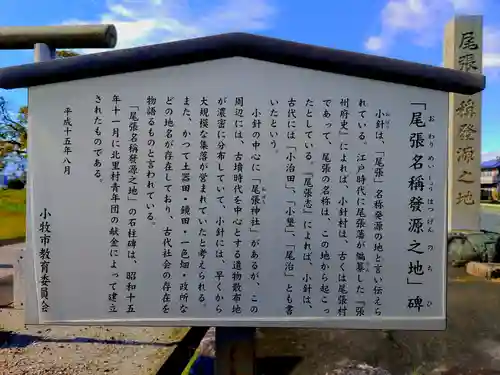 「尾張名稱發源之地」碑
おわりめいしょうはつげんのちひ
小針は、「尾張」名称発源の地と言い伝えら
れている。江戸時代に尾張藩が編纂した『張
州府史』によれば、小針村は、古くは尾張村
であって、尾張の名称は、この地から起こっ
たとしている。『尾張志』によれば、小針は、
古代には「小治田」、「小墾」、「尾治」とも書
いたという。
小針の中心に「尾張神社」があるが、この
周辺には、古墳時代を中心とする遺物散布地
が濃密に分布していて、小針には、早くから
大規模な集落が営まれていたと考えられる。
また、かつて土器田・鏡田・一色畑・政所な
どの地名が存在しており、古代社会の存在を
物語るものと言われている。
「尾張名稱發源之地」の石柱碑は、昭和十五
年十一月に北里村青年団の献金によって建立
されたものである。
平成十五年八月
小牧市教育委員会
尾張名稱發源之地